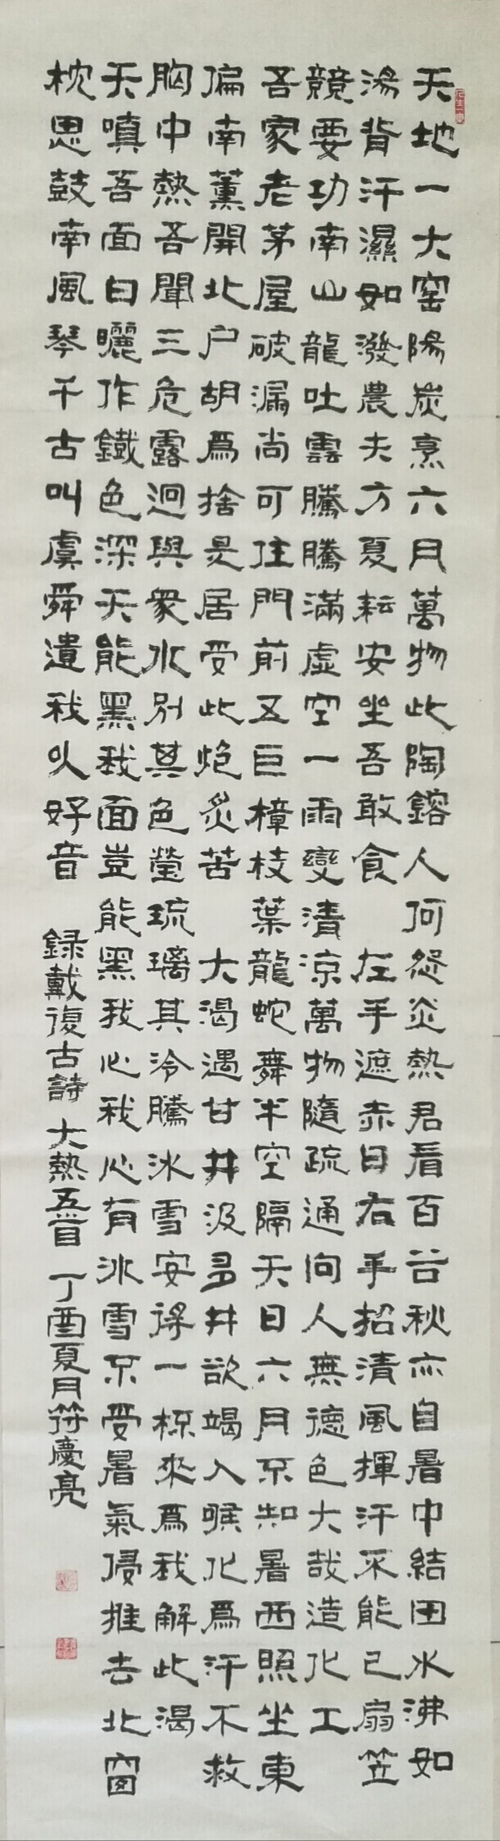 天地一大窑陽炭烹六月萬物此陶鎔人何怨炎熱君看百谷秋亦自暑中結田水沸如
湯背汗濕如潑農夫方夏耘安坐吾敢食　左手遮赤日右手招清風揮汗不能已扇笠
競要功南山龍吐雲騰騰滿虛空一雨變清涼萬物隨疏通向人無德色大哉造化工
吾家老茅屋破漏尚可住門前五巨樟枝葉龍蛇舞半空隔天日六月不知暑西照坐東
偏南薰開北户胡爲捨是居受此炮炙苦　大渴遇甘井汲多井欲竭入喉化爲汗不救
胸中熱吾聞三危露迥與衆水别其色瑩琉璃其冷騰冰雪安得一杯來爲我解此渴
天嗔吾面白曬作鐵色深天能黑我面豈能黑我心我心有冰雪不受暑氣侵推去北窗
枕思鼓南風琴千古叫虞舜遺我以好音　録戴復古詩　大熱五首　丁酉夏月符慶亮